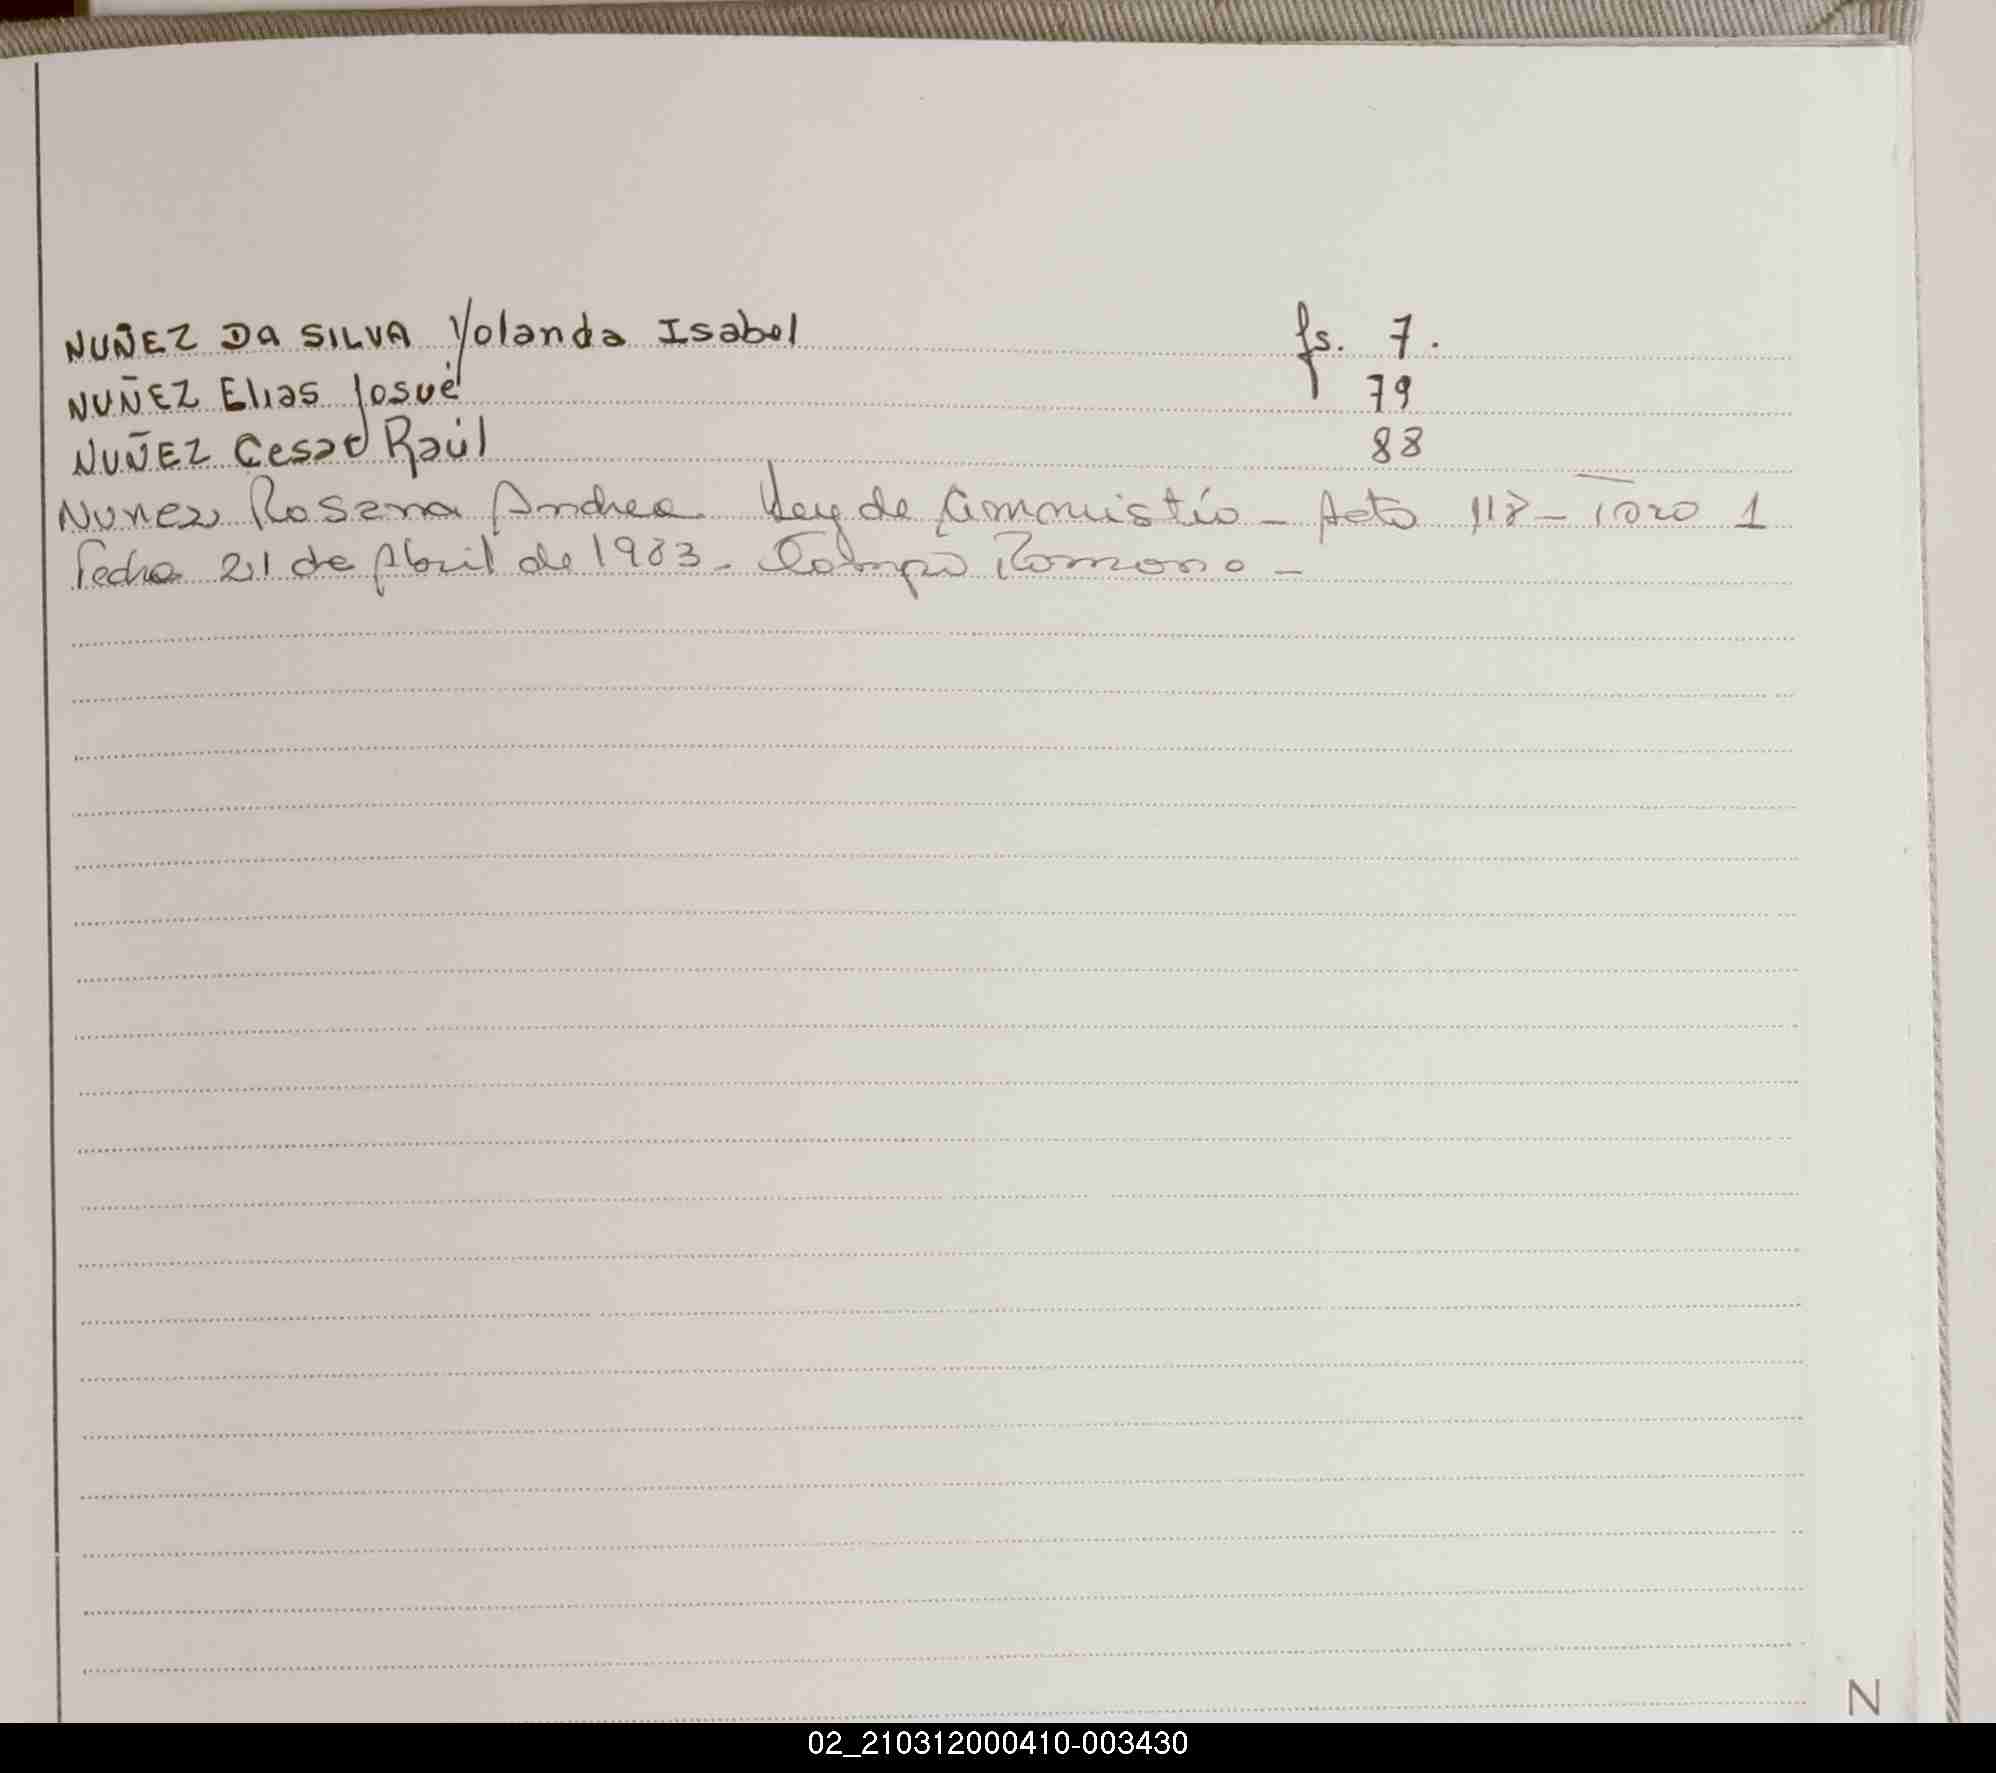 NUÑEZ DA SILVA Yolanda Isabel fs. 7.
NUÑEZ Elias Josué 79
NUÑEZ Cesar Raúl 88
Nunez Rosana Andrea Ley de Ammnistío - Acto 118 - Tomo 1
Fecha 21 de Abril de 1983 - Ramona -
N
02_210312000410-003430